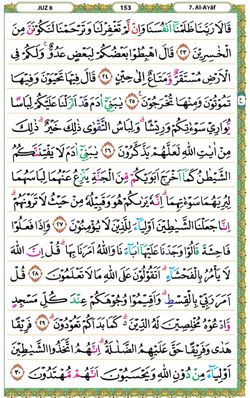 JUZ 8 153 7. Al-A'râf
قَالَا رَبَّنَا ظَلَمْنَآ اَنْفُسَنَا وَاِنْ لَّمْ تَغْفِرْلَنَا وَتَرْحَمْنَا لَنَكُوْنَنَّ مِنَ
الْخٰسِرِيْنَ ﴿٢٣﴾ قَالَ اهْبِطُوْا بَعْضُكُمْ لِبَعْضٍ عَدُوٌّ ۚ وَلَكُمْ فِى
الْاَرْضِ مُسْتَقَرٌّ وَّمَتَاعٌ اِلٰى حِيْنٍ ﴿٢٤﴾ قَالَ فِيْهَا تَحْيَوْنَ وَفِيْهَا
تَمُوْتُوْنَ وَمِنْهَا تُخْرَجُوْنَ ﴿٢٥﴾ يٰبَنِىْٓ اٰدَمَ قَدْ اَنْزَلْنَا عَلَيْكُمْ لِبَاسًا
يُّوَارِىْ سَوْاٰتِكُمْ وَرِيْشًا ۗ وَلِبَاسُ التَّقْوٰى ذٰلِكَ خَيْرٌ ۗ ذٰلِكَ
مِنْ اٰيٰتِ اللّٰهِ لَعَلَّهُمْ يَذَّكَّرُوْنَ ﴿٢٦﴾ يٰبَنِىْٓ اٰدَمَ لَا يَفْتِنَنَّكُمُ
الشَّيْطٰنُ كَمَآ اَخْرَجَ اَبَوَيْكُمْ مِّنَ الْجَنَّةِ يَنْزِعُ عَنْهُمَا لِبَاسَهُمَا
لِيُرِيَهُمَا سَوْاٰتِهِمَا ۗ اِنَّهٗ يَرٰىكُمْ هُوَ وَقَبِيْلُهٗ مِنْ حَيْثُ لَا تَرَوْنَهُمْ ۗ
اِنَّا جَعَلْنَا الشَّيٰطِيْنَ اَوْلِيَآءَ لِلَّذِيْنَ لَا يُؤْمِنُوْنَ ﴿٢٧﴾ وَاِذَا فَعَلُوْا
فَاحِشَةً قَالُوْا وَجَدْنَا عَلَيْهَآ اٰبَآءَنَا وَاللّٰهُ اَمَرَنَا بِهَا ۗ قُلْ اِنَّ اللّٰهَ
لَا يَأْمُرُ بِالْفَحْشَآءِ ۗ اَتَقُوْلُوْنَ عَلَى اللّٰهِ مَا لَا تَعْلَمُوْنَ ﴿٢٨﴾ قُلْ
اَمَرَ رَبِّيْ بِالْقِسْطِ ۗ وَاَقِيْمُوْا وُجُوْهَكُمْ عِنْدَ كُلِّ مَسْجِدٍ
وَّادْعُوْهُ مُخْلِصِيْنَ لَهُ الدِّيْنَ ۗ كَمَا بَدَاَكُمْ تَعُوْدُوْنَ ﴿٢٩﴾ فَرِيْقًا
هَدٰى وَفَرِيْقًا حَقَّ عَلَيْهِمُ الضَّلٰلَةُ ۗ اِنَّهُمُ اتَّخَذُوا الشَّيٰطِيْنَ
اَوْلِيَآءَ مِنْ دُوْنِ اللّٰهِ وَيَحْسَبُوْنَ اَنَّهُمْ مُّهْتَدُوْنَ ﴿٣٠﴾